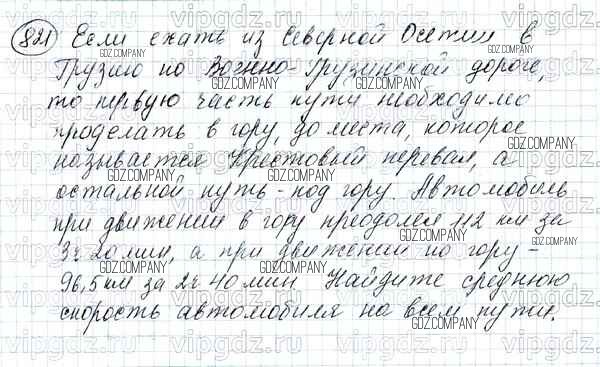 821 Если ехать из Северной Осетии в
Грузию по Военно-Грузинской дороге,
то первую часть пути необходимо
проделать в гору, до места, которое
называется Крестовый перевал, а
остальной путь - под гору. Автомобиль
при движении в гору преодолел 112 км за
3ч 20 мин, а при движении по гору -
96,5 км за 2ч 40 мин Найдите среднюю
скорость автомобиля на всем пути.